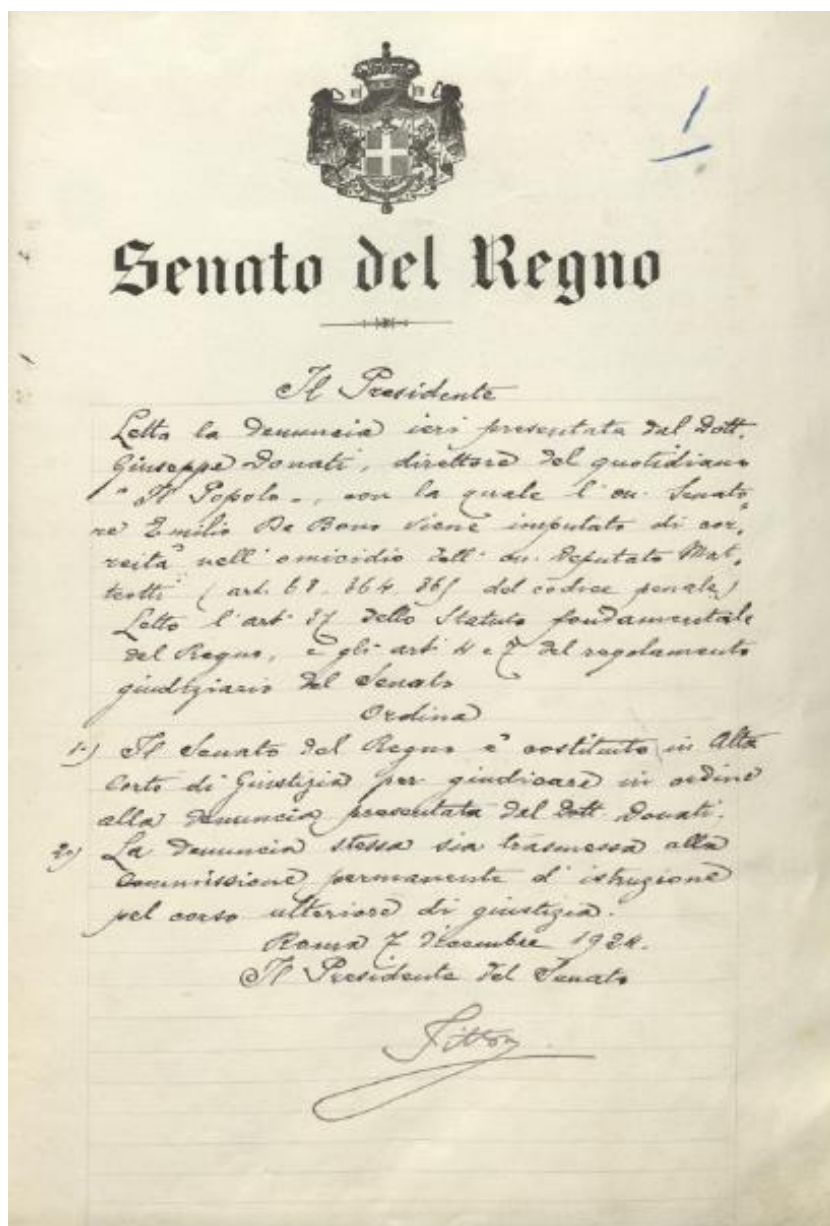 1
Senato del Regno
Il Presidente
Letta la denuncia ieri presentata dal Dott.
Giuseppe Donati, direttore del quotidiano
"Il Popolo", con la quale l'on. Senato„
re Emilio De Bono viene imputato di cor„
reità nell'omicidio dell'on. Deputato Mat„
teotti (art. 63. 364. 365 del codice penale)
Letto l'art. 37 dello Statuto fondamentale
del Regno, e gli art. 4 e 7 del regolamento
giudiziario del Senato
Ordina
1.) Il Senato del Regno è costituito in Alta
Corte di Giustizia per giudicare in ordine
alla denuncia presentata dal Dott. Donati.
2.) La denuncia stessa sia trasmessa alla
Commissione permanente d'istruzione
pel corso ulteriore di giustizia.
Roma 7 Dicembre 1924.
Il Presidente del Senato
Tittoni